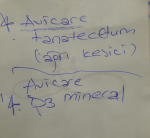 4. Avicare
tanacetum
(apri kesici)
Avicare
4. D3 mineral